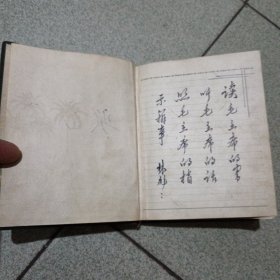 读毛主席的书
听毛主席的话
照毛主席的指
示办事
林彪